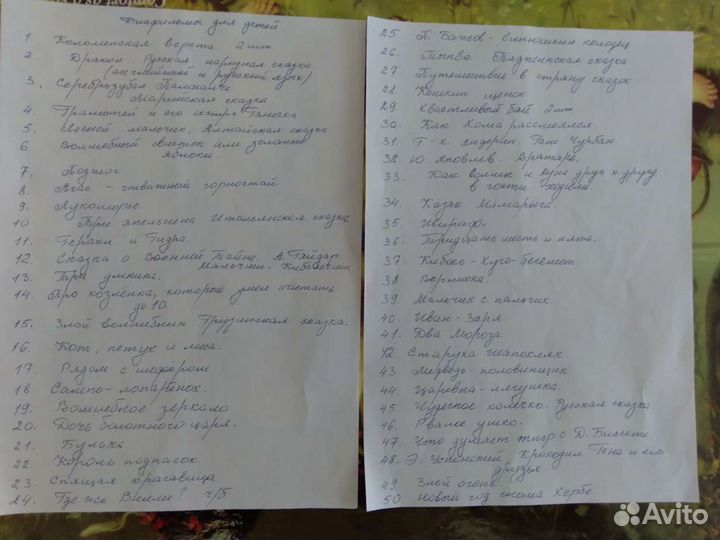 Диафильмы для детей
1. Коломенская верста 2 шт
2. Дракон. Русская народная сказка
(английский и русский язык)
3. Сереброзубая
Марийская сказка
4. Грамотей и его сестра Танечка
5. Лесной мальчик. Алтайская сказка
6. Волшебный свисток или золотые
яблоки
7. Поджог
8. Агас - отважный горностай
9. Лукоморье
10 Три апельсина Итальянская сказка
11. Геракл и Гидра.
12. Сказка о Военной Тайне. А. Гайдар
Мальчиш-Кибальчиш
13. Три умника.
14. Про козлёнка, который умел считать
до 10.
15. Злой волшебник Грузинская сказка.
16. Кот, петух и лиса.
17. Рядом с шофёром
18 Сампо-лопарёнок.
19. Волшебное зеркало
20. Дочь болотного царя.
21. Булька
22 Король подпасок.
23. Спящая красавица
24. Где же Вилли? ч/б
25 П. Бажов - Синюшкин колодец
26. Тыпве Тоджинская сказка
27 Путешествие в страну сказок
28. Кошкин щенок
29. Хвастливый бай 2 шт
30. Как Хома рассмеялся
31. Г-х. Андерсен Ганс Чурбан
32 Ю. Яковлев. Вратарь.
33. Как солнце и луна друг к другу
в гости ходили
34. Казак Мамарыга.
35. Жираф.
36. Тридцать шесть и пять.
37. Кибоко-Хуго-бегемот
38. Верлиока.
39. Мальчик с пальчик.
40. Иван-Заря
41. Два Мороза
42 Старуха Шапокляк
43 Медведь-половинщик
44. Царевна-лягушка.
45. Чудесное колечко. Русская сказка.
46. Рваное ушко.
47. Что думает тигр о Д. Биссете
48. Э. Успенский. Крокодил Гена и его
друзья
49 Злой огонь
50 Новый год гнома Хербе
Avito